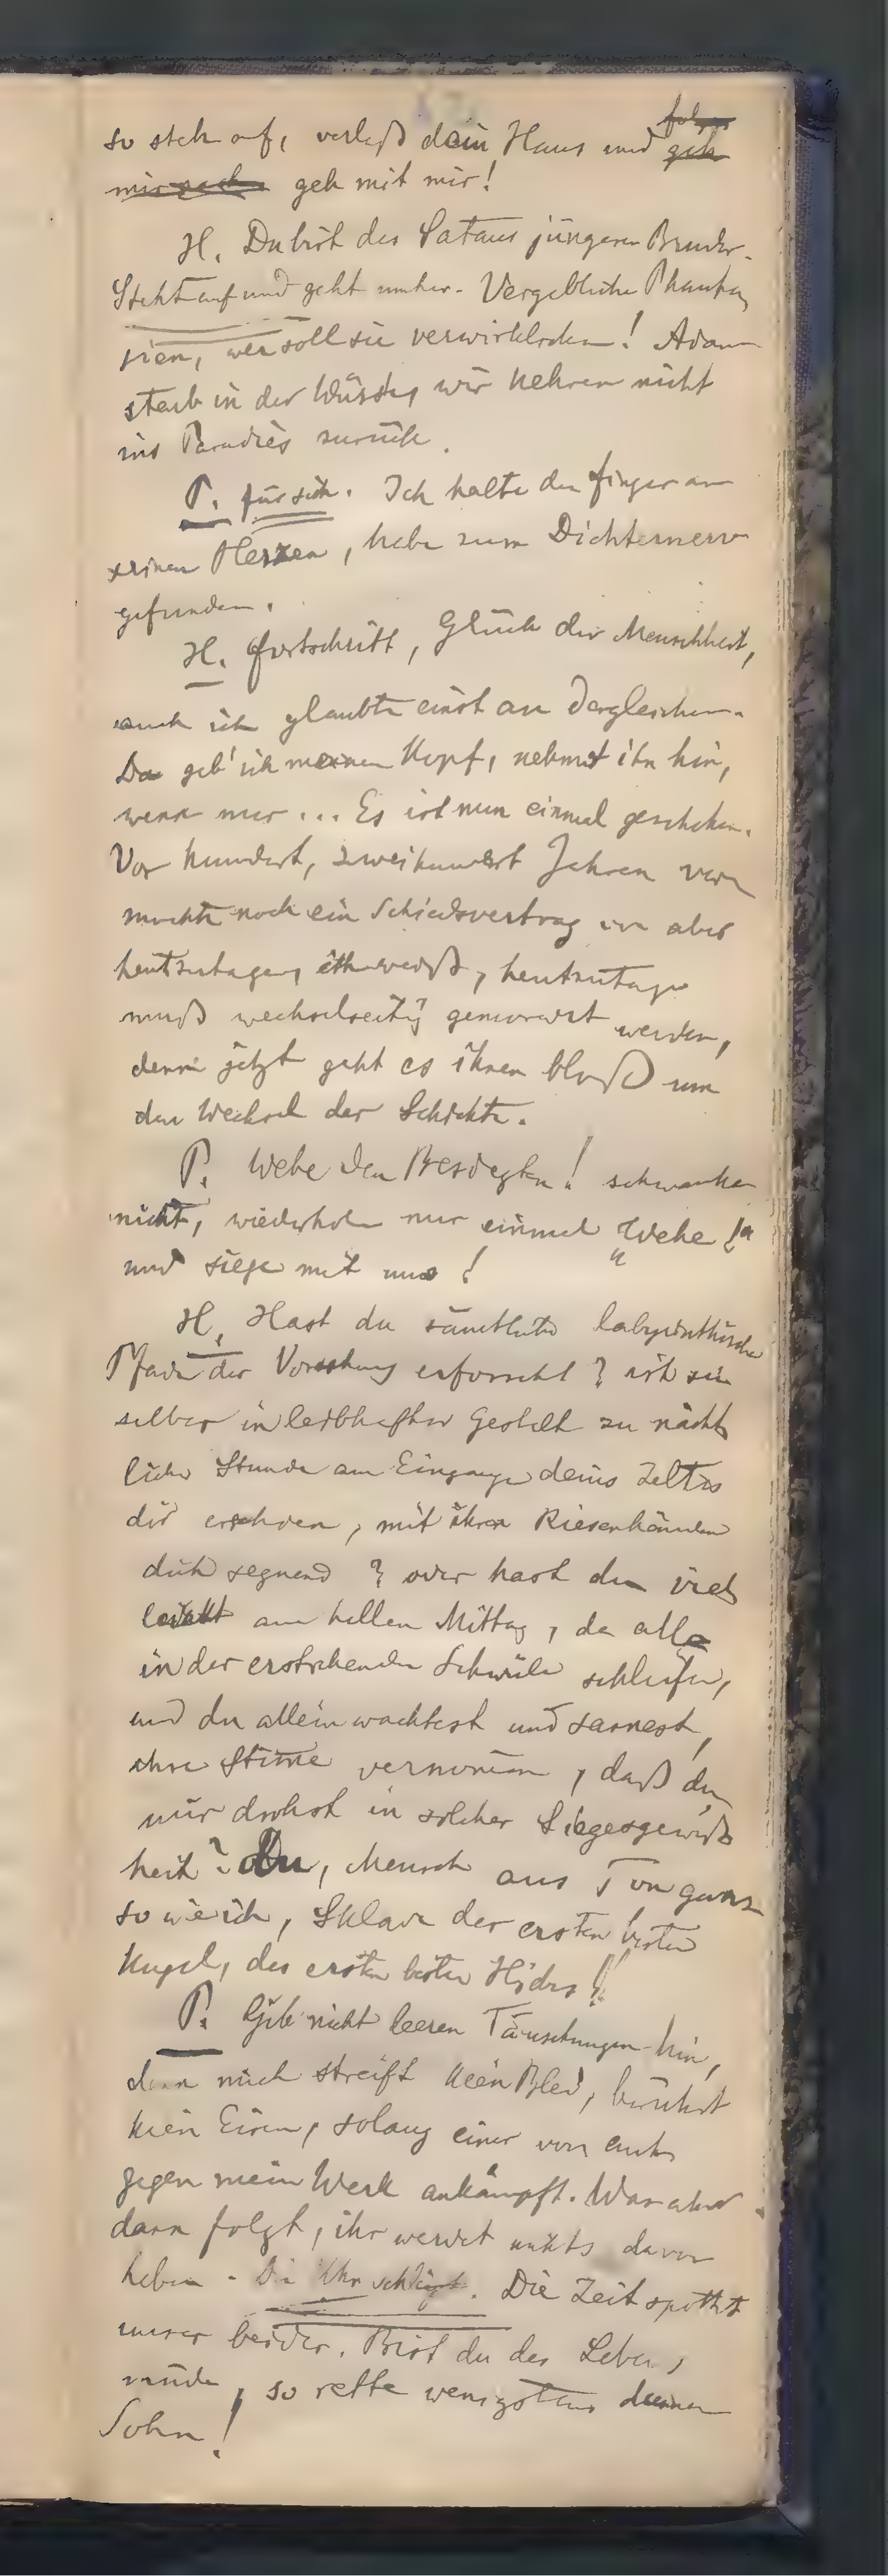 so steh auf, verlaß dein Haus und folge geh
mir nach geh mit mir!
H. Du bist des Satans jüngerer Bruder.
Steht auf und geht umher. Vergebliche Phanta
sien, wer soll sie verwirklichen! Adam
starb in der Wüste, wir kehren nicht
ins Paradies zurück.
P. für sich. Ich halte den Finger am
seinem Herzen, habe zum Dichternerv
gefunden.
H. Fortschritt, Glück der Menschheit,
auch ich glaubte einst an dergleichen.
Da geb' ich meinen Kopf, nehmt ihn hin,
wenn nur ... Es ist nun einmal geschehen.
Vor hundert, zweihundert Jahren ver
mochte noch ein Schiedsvertrag aber
heutzutage, ich weiß, heutzutage
muß wechselseitig gemordet werden,
denn jetzt geht es ihnen bloß um
den Wechsel der Schichte.
P. Wehe den Besiegten! schwanke
nicht, wiederhole nur einmal „Wehe!“
und siege mit uns!
H. Hast du sämtliche labyrinthische
Pfade der Vorsehung erforscht? ist sie
selber in leibhafter Gestalt zu nächt
licher Stunde am Eingange deines Zeltes
dir erschienen, mit ihren Riesenhänden
dich segnend? oder hast du viel
leicht am hellen Mittag, da alle
in der erstickenden Schwüle schliefen,
und du allein wachtest und sannest,
ihre Stimme vernommen, daß du
mir drohst in solcher Siegesgewiß
heit? Du, Mensch aus Ton ganz
so wie ich, Sklave der ersten besten
Kugel, des ersten besten Hiebs!
P. Gib nicht leeren Täuschungen hin,
denn mich streift kein Blei, berührt
kein Eisen, solang einer von euch
gegen mein Werk ankämpft. Was aber
dann folgt, ihr werdet nichts davon
haben. Die Uhr schlägt. Die Zeit spottet
unser beider. Bist du des Lebens
müde, so rette wenigstens deinen
Sohn!